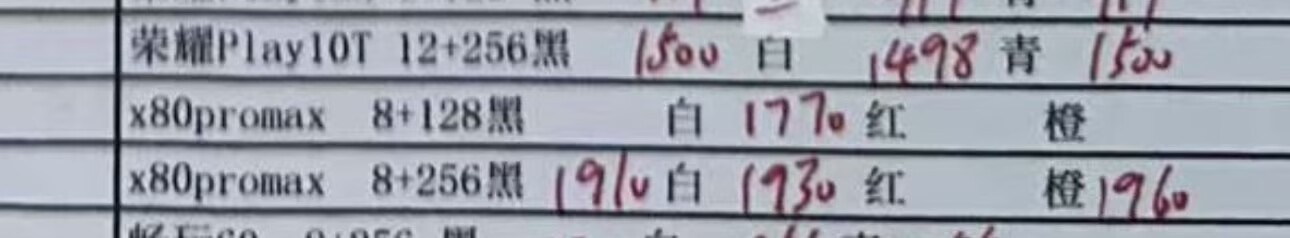 荣耀Play10T 12+256黑 1500 白 1498 青 1500
x80promax 8+128黑 白 1770 红 橙
x80promax 8+256黑 1910 白 1930 红 橙 1960